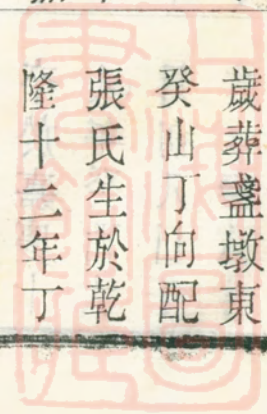 歲葬盞墩東
癸山丁向配
張氏生於乾
隆十二年丁